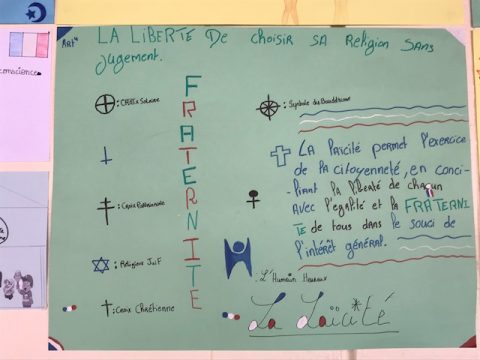 Art 4
LA LiBERTÉ De choisir SA Religion SANS
jugement.
conscience
FRATERNITÉ
: CROIX Solaire
: Symbole du Bouddhisme
LA laïcité permet l'exercice
de la citoyenneté, en conci-
liant la liberté de chacun
AVEC l'égalité et la FRATERNI
TE de tous dans le souci de
l'intérêt général.
: Religieux Juif
: L'Humain Heureux
: Croix Chrétienne
La Laïcité